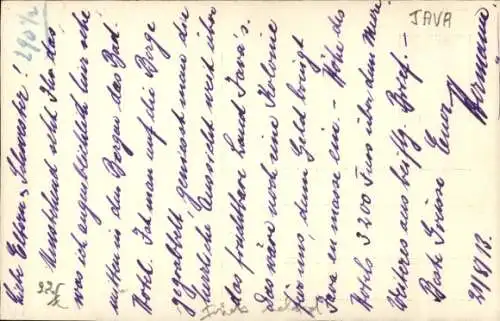 JAVA
290 1/2
Liebe Eltern u. Schwester!
Umstehend seht Ihr das
was ich augenblicklich hier sehe
mitten in den Bergen das
Hotel. Ist man auf die Berge
gekrabbelt, geniesst man die
herrliche Aussicht weit über
das fruchtbare Land Java's.
Das wäre noch eine Kolonie
für uns, denn Geld bringt
Java en masse ein. - Höhe des
Hotels 3200 Fuss über dem Meer.
Weiteres aus Brief. -
Beste Grüsse Euer
Hermann
21/8/13.
925